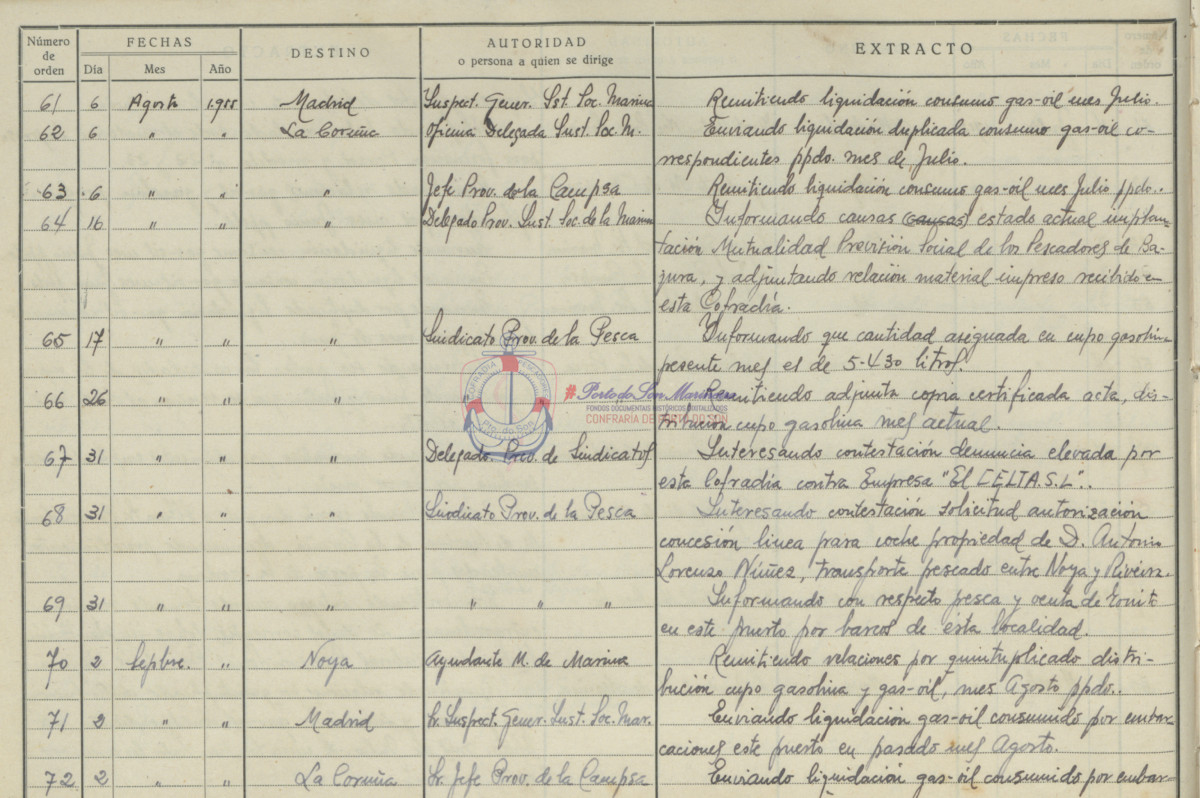 Número de orden FECHAS DESTINO AUTORIDAD o persona a quien se dirige EXTRACTO
Día Mes Año
61 6 Agosto 1.955 Madrid Inspect. Gener. Ist. Soc. Marina Remitiendo liquidación consumo gas-oil mes Julio.
62 6 " " La Coruña Oficina Delegada Inst. Soc. M. Enviando liquidación duplicada consumo gas-oil co-
rrespondientes ppdo. mes de Julio.
63 6 " " " Jefe Prov. de la Campsa Remitiendo liquidación consumo gas-oil mes Julio ppdo..
64 16 " " " Delegado Prov. Inst. Soc. de la Marina Informando causas (causas) estado actual implan-
tación Mutualidad Previsión Social de los Pescadores de Ba-
jura, y adjuntando relación material impreso recibido en
esta Cofradía.
65 17 " " " Sindicato Prov. de la Pesca Informando que cantidad asignada en cupo gasolina
pesente mes el de 5-430 litros.
66 26 " " " " Remitiendo adjunta copia certificada acta, dis-
tribución cupo gasolina mes actual.
COFRADIA PESCADORES
Pto. do Son
#Porto do Son Mariñeiro
FONDOS DOCUMENTAIS HISTÓRICOS DIXITALIZADOS
CONFRARÍA DE PORTO DO SON
67 31 " " " Delegado. Prov. de Sindicatos Interesando contestación denuncia elevada por
esta Cofradía contra Empresa "El CELTA.S.L"..
68 31 " " " Sindicato Prov. de la Pesca Interesando contestación solicitud autorización
concesión linea para coche propiedad de D. Antonio
Lorenzo Núñez, transporte pescado entre Noya y Riveira.
69 31 " " " " " " Informando con respecto pesca y venta de
en este puerto por barcos de ésta localidad.
70 2 Sepbre. " Noya Ayudante M. de Marina Remitiendo relaciones por quintuplicado distri-
bución cupo gasolina y gas-oil, mes Agosto ppdo..
71 2 " " Madrid Sr. Inspect. Gener. Inst. Soc. Mar. Enviando liquidación gas-oil consumido por embar-
caciones este puerto en pasado mes Agosto.
72 2 " " La Coruña Sr. Jefe Prov. de la Campsa Enviando liquidación gas-oil consumido por embar-